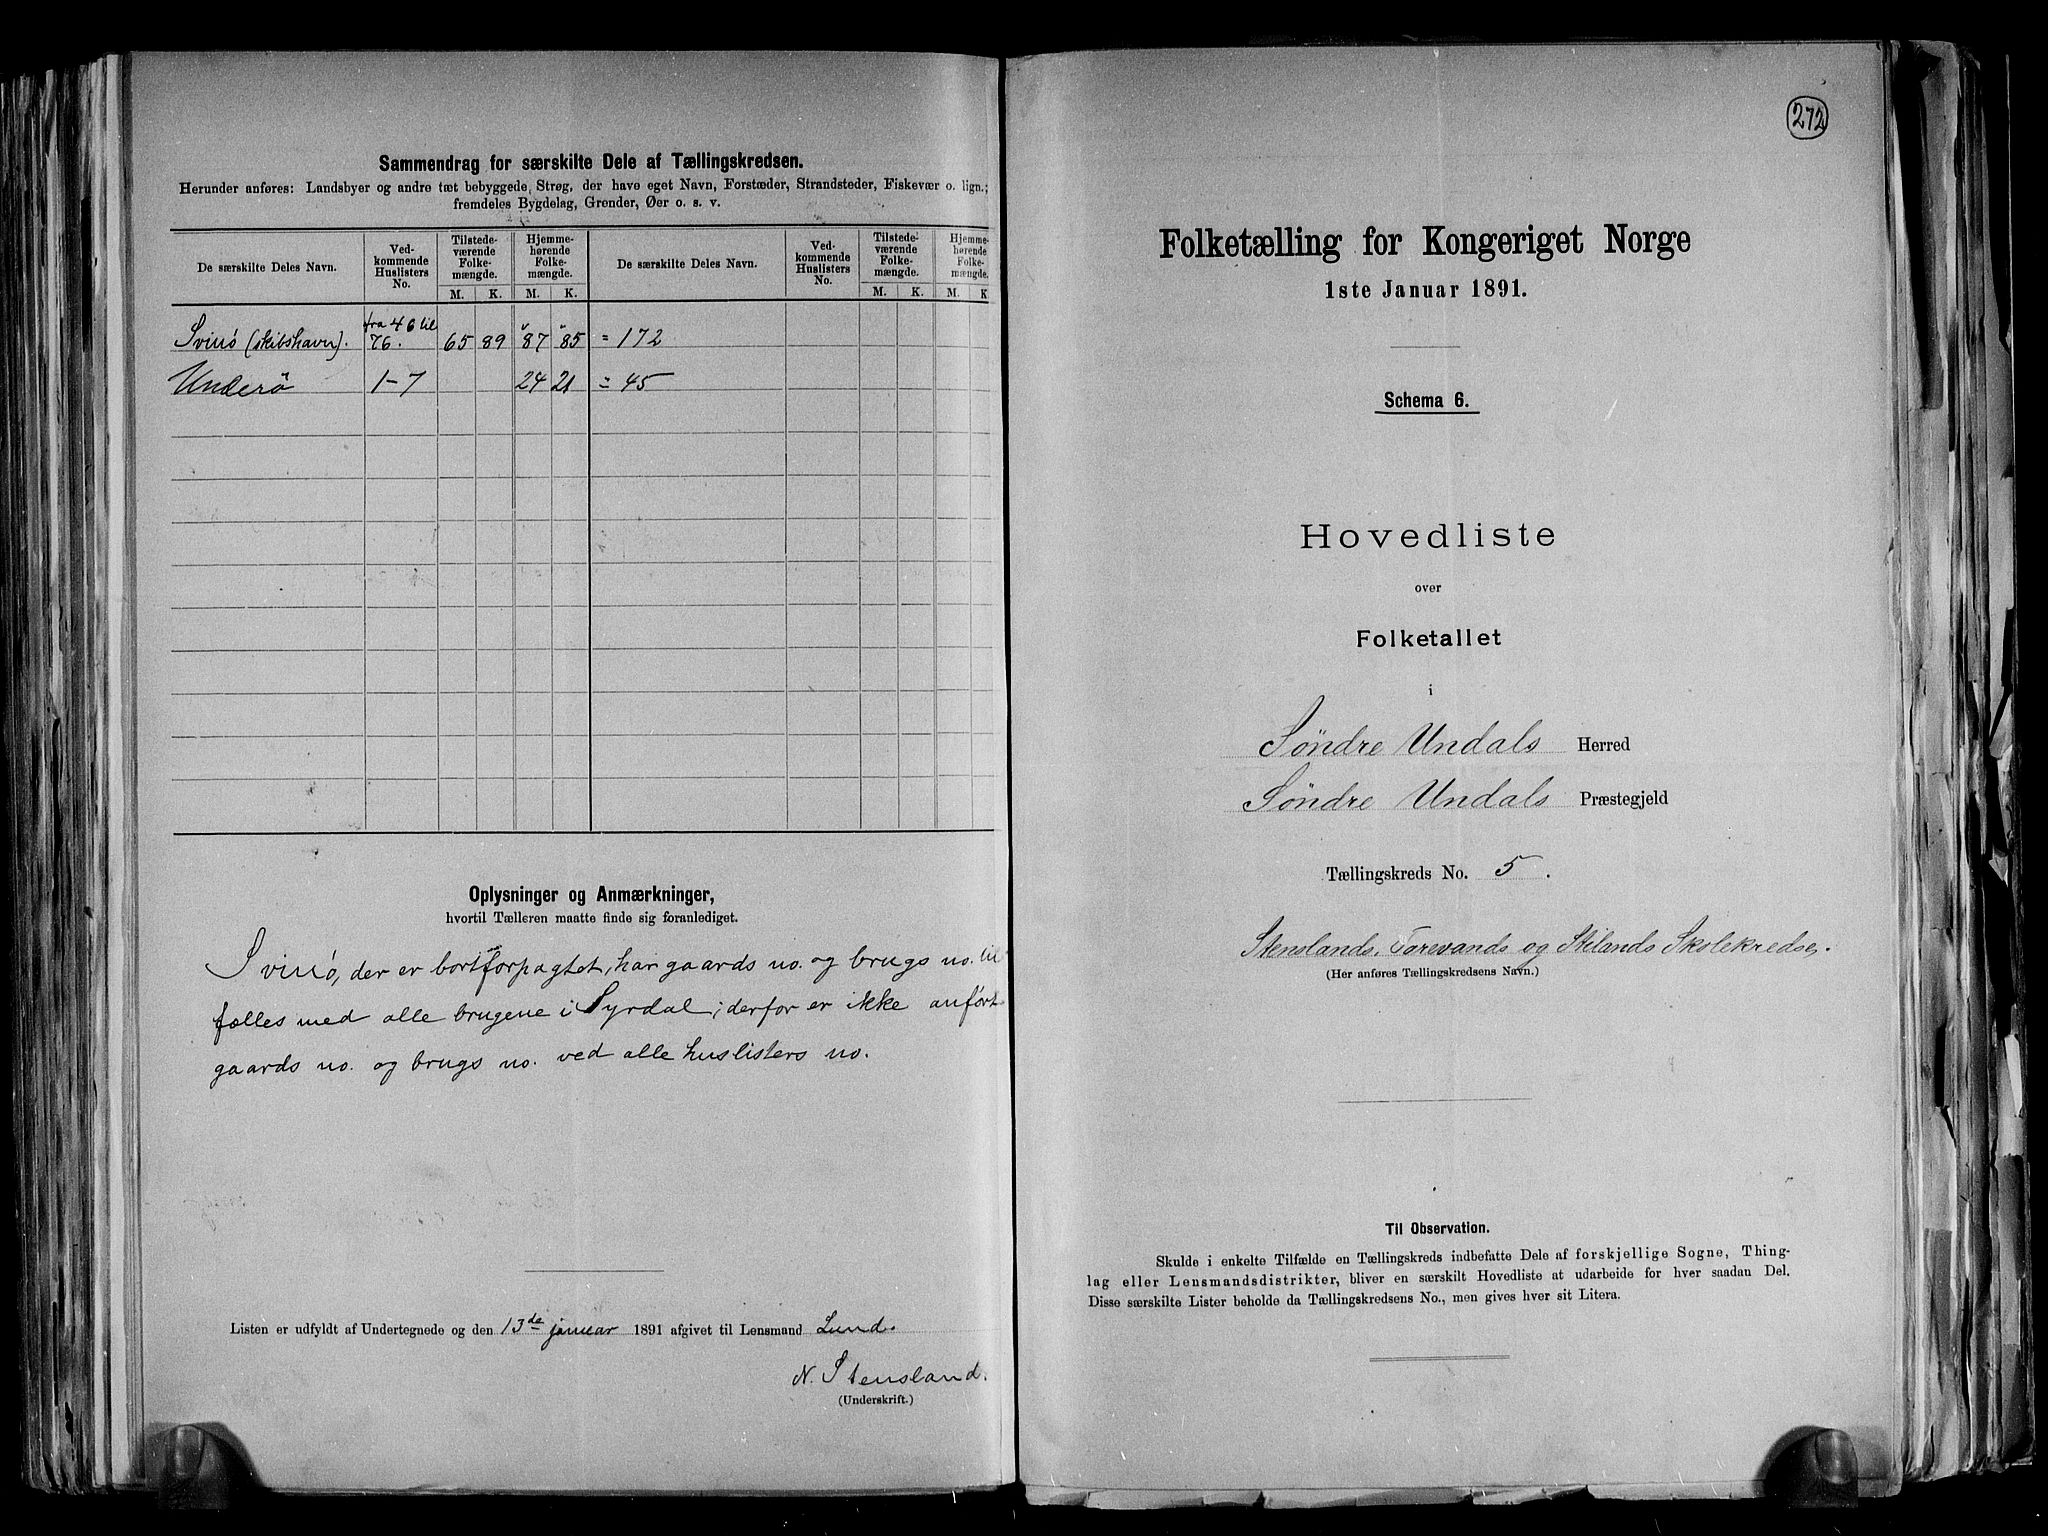 Sammendrag for særskilte Dele af Tællingskredsen.
Herunder anføres: Landsbyer og andre tæt bebyggede Strøg, der have eget Navn, Forstæder, Strandsteder, Fiskevær o. lign.;
fremdeles Bygdelag, Grender, Øer o. s. v.
De særskilte Deles Navn. Ved-kommende Huslisters No. Tilstede-værende Folke-mængde. Hjemme-hørende Folke-mængde. De særskilte Deles Navn. Ved-kommende Huslisters No. Tilstede-værende Folke-mængde. Hjemme-hørende Folke-mængde.
M. K. M. K. M. K. M. K
Svinø (skibshavn). fra 46 til 76. 65 89 "87 "85 = 172
Underö 1-7 24 21 = 45
Oplysninger og Anmærkninger,
hvortil Tælleren maatte finde sig foranlediget.
Svinø, der er bortforpagtet, har gaards no. og brugs no. til
fælles med alle brugene i Syrdal; derfor er ikke anført
gaards no. og brugs no. ved alle huslisters no.
Listen er udfyldt af Undertegnede og den 13de januar 1891 afgivet til Lensmand Lund.
N. Stensland.
(Underskrift.)
272
Folketælling for Kongeriget Norge
1ste Januar 1891.
Schema 6.
Hovedliste
over
Folketallet
i
Søndre Undals Herred
Søndre Undals Præstegjeld
Tællingskreds No. 5.
Stenslands, Tarevands og Stilands Skolekredse.
(Her anføres Tællingskredsens Navn.)
Til Observation.
Skulde i enkelte Tilfælde en Tællingskreds indbefatte Dele af forskjellige Sogne, Thing-
lag eller Lensmandsdistrikter, bliver en særskilt Hovedliste at udarbeide for hver saadan Del.
Disse særskilte Lister beholde da Tællingskredsens No., men gives hver sit Litera.